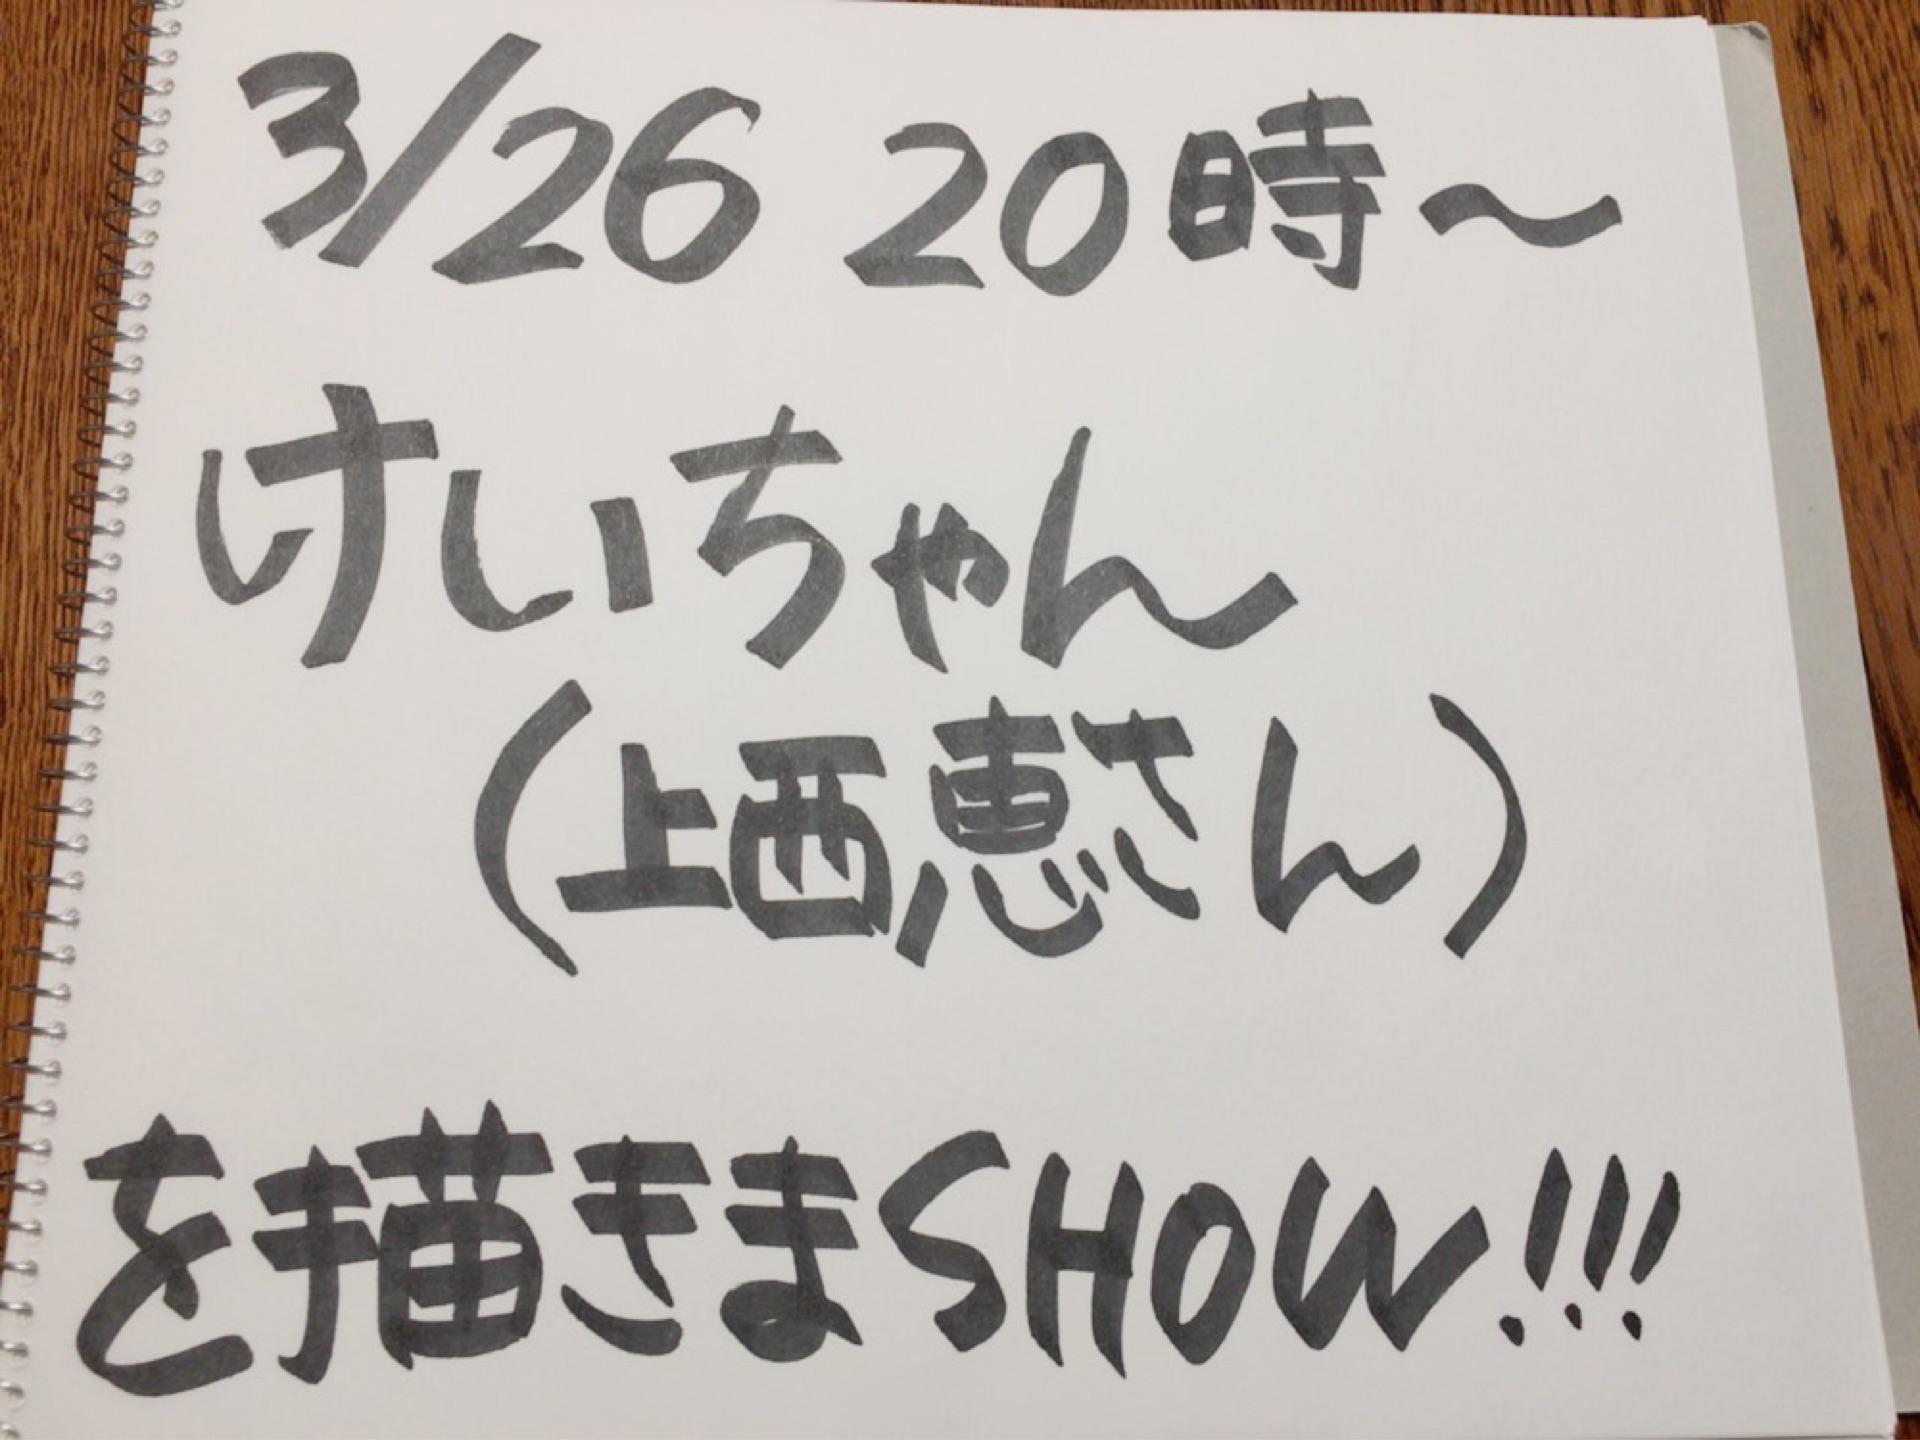 3/26 20時～
けいちゃん
(上西恵さん)
を描きまSHOW!!!